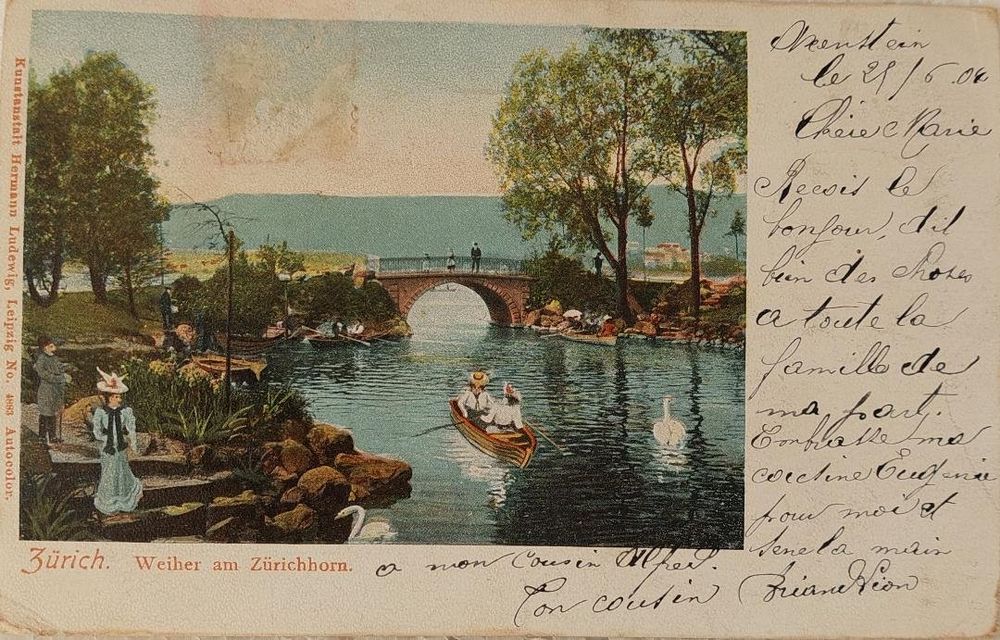 Kunstanstalt Hermann Ludewig, Leipzig No. 4883 Autocolor.
le 25/6 04
Chèie Marie
Recois le
bonjour, dit
bien des choses
a toute la
famille de
ma part.
Embrasse ma
cousine Eugenie
pour moi et
sere la main
a mon Cousin Alfred.
Ton cousin
Zürich. Weiher am Zürichhorn.